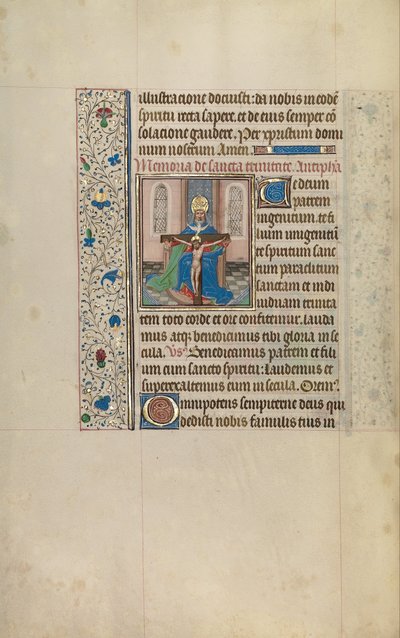 illustracione docuisti: da nobis in eodē
spiritu recta sapere. et de eius semper cō
solacione gaudere. Per xpristum domi
num nostrum Amen.
Memoria de sancta trinitate. Antipha
Te deum
patrem
ingenitum. te fi
lium unigenitū
te spiritum sanc
tum paraclitum
sanctam et indi
uiduam trinita
tem toto corde et ore confitemur. lauda
mus atqꝫ benedicimus tibi gloria in se
cula. Vs. Benedicamus patrem et fili
um cum sancto spiritu: Laudemus et
superexaltemus eum in secula. Orem?
Omnipotens sempiterne deus qui
dedisti nobis famulis tuis in